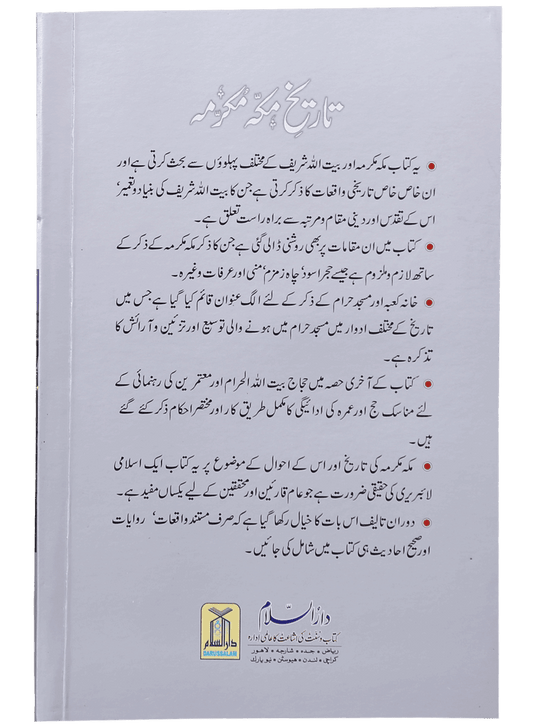 تاریخِ مکّہ مکرّمہ
یہ کتاب مکہ مکرمہ اور بیت اللہ شریف کے مختلف پہلوؤں سے بحث کرتی ہے اور
ان خاص خاص تاریخی واقعات کا ذکر کرتی ہے جن کا بیت اللہ شریف کی بنیاد و تعمیر'
اس کے تقدس اور دینی مقام و مرتبہ سے براہ راست تعلق ہے۔
کتاب میں ان مقامات پر بھی روشنی ڈالی گئی ہے جن کا ذکر مکہ مکرمہ کے ذکر کے
ساتھ لازم و ملزوم ہے جیسے حجر اسود' چاہ زمزم' منی اور عرفات وغیرہ۔
خانہ کعبہ اور مسجد حرام کے ذکر کے لئے الگ عنوان قائم کیا گیا ہے جس میں
تاریخ کے مختلف ادوار میں مسجد حرام میں ہونے والی توسیع اور تزئین و آرائش کا
تذکرہ ہے۔
کتاب کے آخری حصہ میں حجاج بیت اللہ الحرام اور معتمرین کی رہنمائی کے
لئے مناسک حج اور عمرہ کی ادائیگی کا مکمل طریق کار اور مختصر احکام ذکر کئے گئے
ہیں۔
مکہ مکرمہ کی تاریخ اور اس کے احوال کے موضوع پر یہ کتاب ایک اسلامی
لائبریری کی حقیقی ضرورت ہے جو عام قارئین اور محققین کے لیے یکساں مفید ہے۔
دوران تالیف اس بات کا خیال رکھا گیا ہے کہ صرف مستند واقعات' روایات
اور صحیح احادیث ہی کتاب میں شامل کی جائیں۔
دارُالسّلام
کتاب و سنّت کی اشاعت کا عالمی ادارہ
ریاض • جدہ • شارجہ • لاہور
کراچی • لندن • ہیوسٹن • نیو یارک
دارالسلام
DARUSSALAM